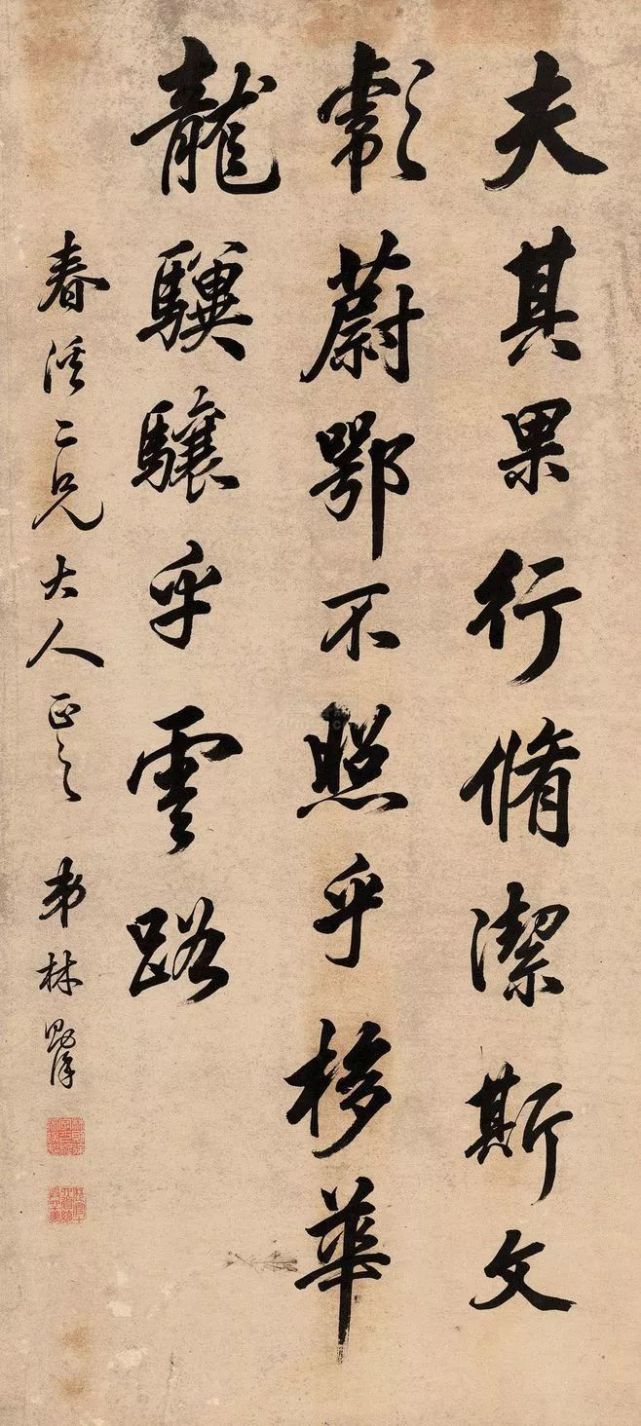 夫其果行脩潔斯文
彪蔚鄂不照乎栘華
龍驥驤乎雲路
春溪二兄大人正之 弟林則徐